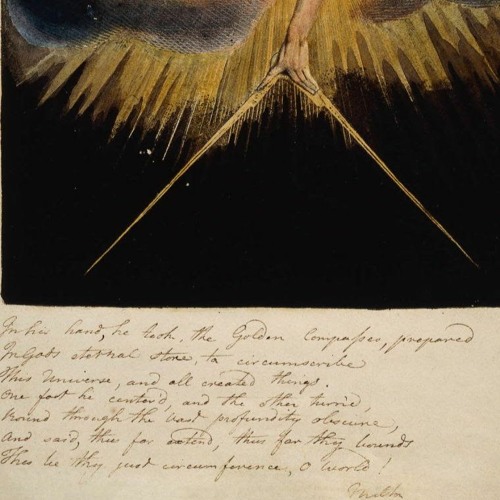 In his hand, he took, the Golden Compasses, prepared
In Gods eternal store, to circumscribe
This Universe, and all created things.
One foot he center'd, and the other turn'd,
Round through the vast profundity obscure,
And said, thus far extend, thus far thy bounds
This be thy just circumference, O World!
Milton